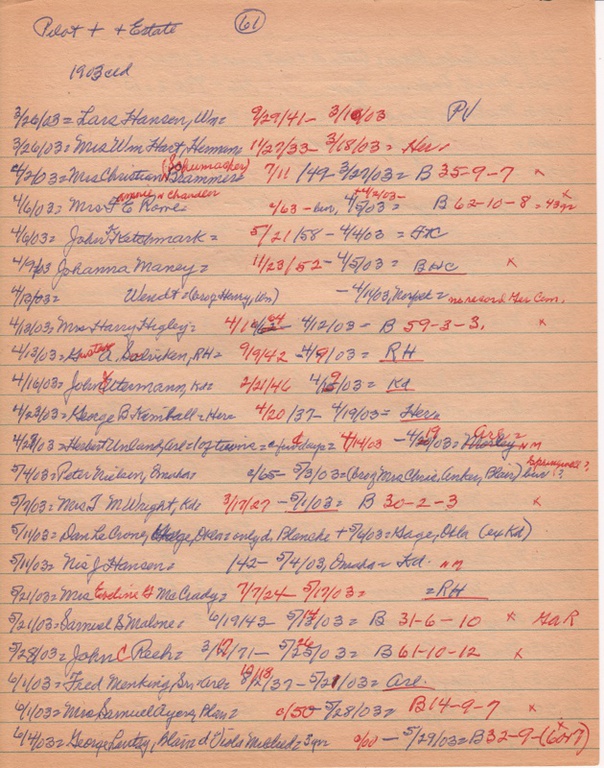 Pilot + + Estate 61
1903 cld
3/26/03 = Lars Hansen, Wn= 9/29/41 - 3/10/03 PV
3/26/03 = Mrs Wm Hart, Herman 11/27/33 - 3/18/03 = Her=
4/2/03 = Mrs Christian (Schumacher) Brammer= 7/11/49 - 3/27/03 = B 35-9-7 x
4/6/03 = Mrs F E Rome= Chandler 2/63 - 4/5/03 = B 62-10-8 = 43yr x
4/6/03 = John F Ketchmark = 5/21/58 - 4/4/03 =
4/9/03 Johanna Maney = 11/23/52 - 4/5/03 = B x
4/13/03 = Wendt = (bro of Henry, Wn) - 4/1/03, = no record Ger Cem.
4/13/03 = Mrs Harry Hegley = 4/12/03 - B 59-3-3. x
4/13/03 = Gustav A. RH = 9/9/42 - 4/9/03 = RH
4/16/03 = John Ottermann, Kd= 2/21/46 4/9/03 = Kd
4/23/03 = George B Kemball = Her= 4/20/37 - 4/19/03 = Her=
4/28/03 = Herbert Unland, Arl = 1 of twins = 4/14/03 - NM
5/4/03 = Peter Nielsen, Omaha = 2/65 - 5/3/03 = (bro of Mrs Chris Blair)
5/7/03 = Mrs T M Wright, Kd= 3/17/27 - 5/1/03 = B 30-2-3 x
5/11/03 = Dan La Crone, Gage, Okla = only d. Blanche + 5/6/03 = Gage, Okla (ex Kd)
5/11/03 = Nis J Hansen = /42 - 5/4/03, Omaha = Kd. NM
5/21/03 = Mrs Erdine G McCrady = 7/7/24 - 5/17/03 = = RH
5/21/03 = Samuel S Malone = 6/19/43 - 5/14/03 = B 31-6-10 x GaR
5/28/03 = John C Reeh = 3/17/71 - 5/26/03 = B 61-10-12 x
6/1/03 = Fred Menking, Sr, Arl= /37 - 5/21/03 = Arl.
6/1/03 = Mrs Samuel Ayers, Blair= c/50 - 5/28/03 = B 14-9-7 x
6/4/03 = George Lantry, Blair d Viola = 3yr c/00 - 5/29/03 = B 32-9-(6or7) x